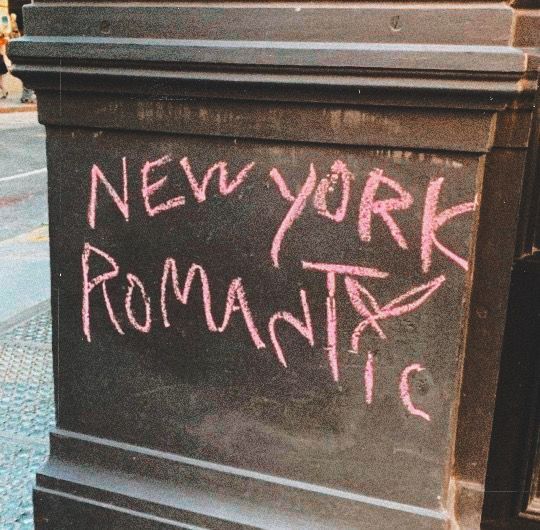 NEW YORK
ROMANTIC